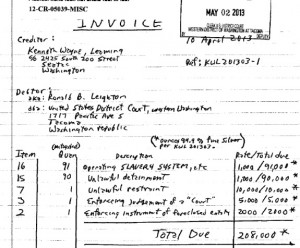 12-CR-05039-MISC
MAY 02 2013
INVOICE
10 April 2013
Creditor:
Kenneth Wayne, Leaming
Ref: KUL201303-1
Seatac
Washington
Debtor:
aka: Ronald B. Leighton
dba: United States District Court, Western Washington
1717 Pacific Ave S
Tacoma
Washington republic
* ounces 99.9% fine Silver
per KUL 201303.
Item Quan Description Rate/Total due
16 91 Operating SLAVERY SYSTEM, etc 1,000/91,000 *
15 90 Unlawful determent 1,000/90,000 *
7 1 Unlawful restraint 10,000/10,000 *
3 1 Enforcing Judgement of a "Court" 5,000/5,000 *
2 1 Enforcing instrument of foreclosed entity 2000/2000 *
Total Due 208,000 *